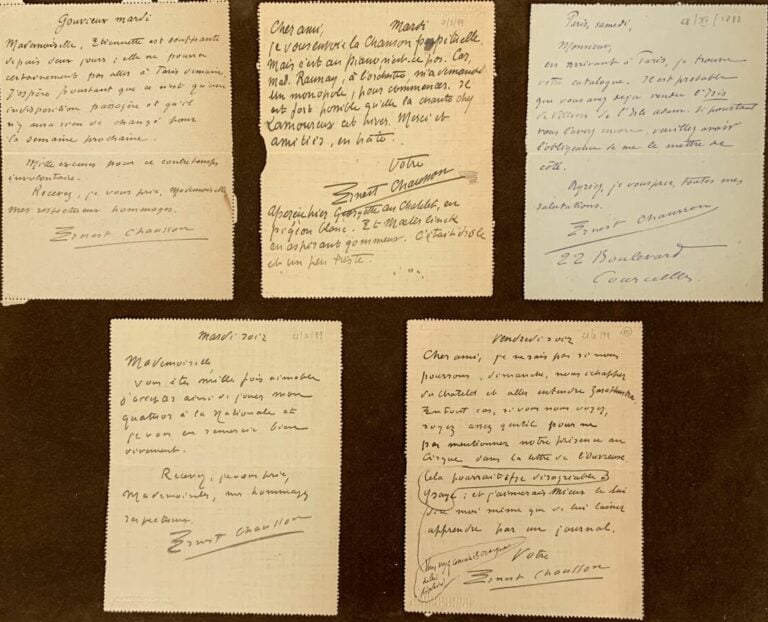 Gouvieux mardi
Mademoiselle, Etiennette est souffrante
depuis deux jours ; elle ne pourra
certainement pas aller à Paris demain.
J'espère pourtant que ce n'est qu'une
indisposition passagère et qu'il
n'y aura rien de changé pour
la semaine prochaine.
Mille excuses pour ce contretemps
involontaire.
Recevez, je vous prie, Mademoiselle
mes respectueux hommages.
Ernest Chausson
Mardi
Cher ami,
je vous envoie la Chanson perpétuelle
mais c'est au piano, n'est-ce pas. Car,
Mad. Raunay, à l'orchestre, m'a demandé
un monopole, pour commencer. Il
est fort possible qu'elle la chante chez
Lamoureux cet hiver. Merci et
amitiés, en hâte.
Votre
Ernest Chausson
Aperçu hier Georgette au Chatelet, en
pigeon blanc. Et Maeterlinck
en aspirant gommeux. C'était drôle
et un peu triste.
Paris, samedi,
Monsieur,
en arrivant à Paris, je trouve
votre catalogue. Il est probable
que vous avez déjà vendu l'Isis
de Villiers de l'Isle adam. Si pourtant
vous l'avez encore, veuillez avoir
l'obligeance de me le mettre de
côté.
Agréez, je vous prie, toutes mes
salutations.
Ernest Chausson
22 Boulevard
Courcelles
Mardi soir
Mademoiselle
Vous êtes mille fois aimable
d'accepter ainsi de jouer mon
quatuor à la Nationale et
je vous en remercie bien
vivement.
Recevez, je vous prie,
Mademoiselle, mes hommages
respectueux.
Ernest Chausson
Vendredi soir
Cher ami, je ne sais pas si nous
pourrons, dimanche, nous échapper
du Chatelet et aller entendre Zarathustra.
En tout cas, si vous nous voyez,
soyez assez gentil pour ne
pas mentionner notre présence au
Cirque dans la lettre de l'Ouvreuse.
Cela pourrait être désagréable à
Ysaÿe ; et j'aimerais mieux le lui
dire moi même que de lui laisser
apprendre par un journal.
Votre
Ernest Chausson